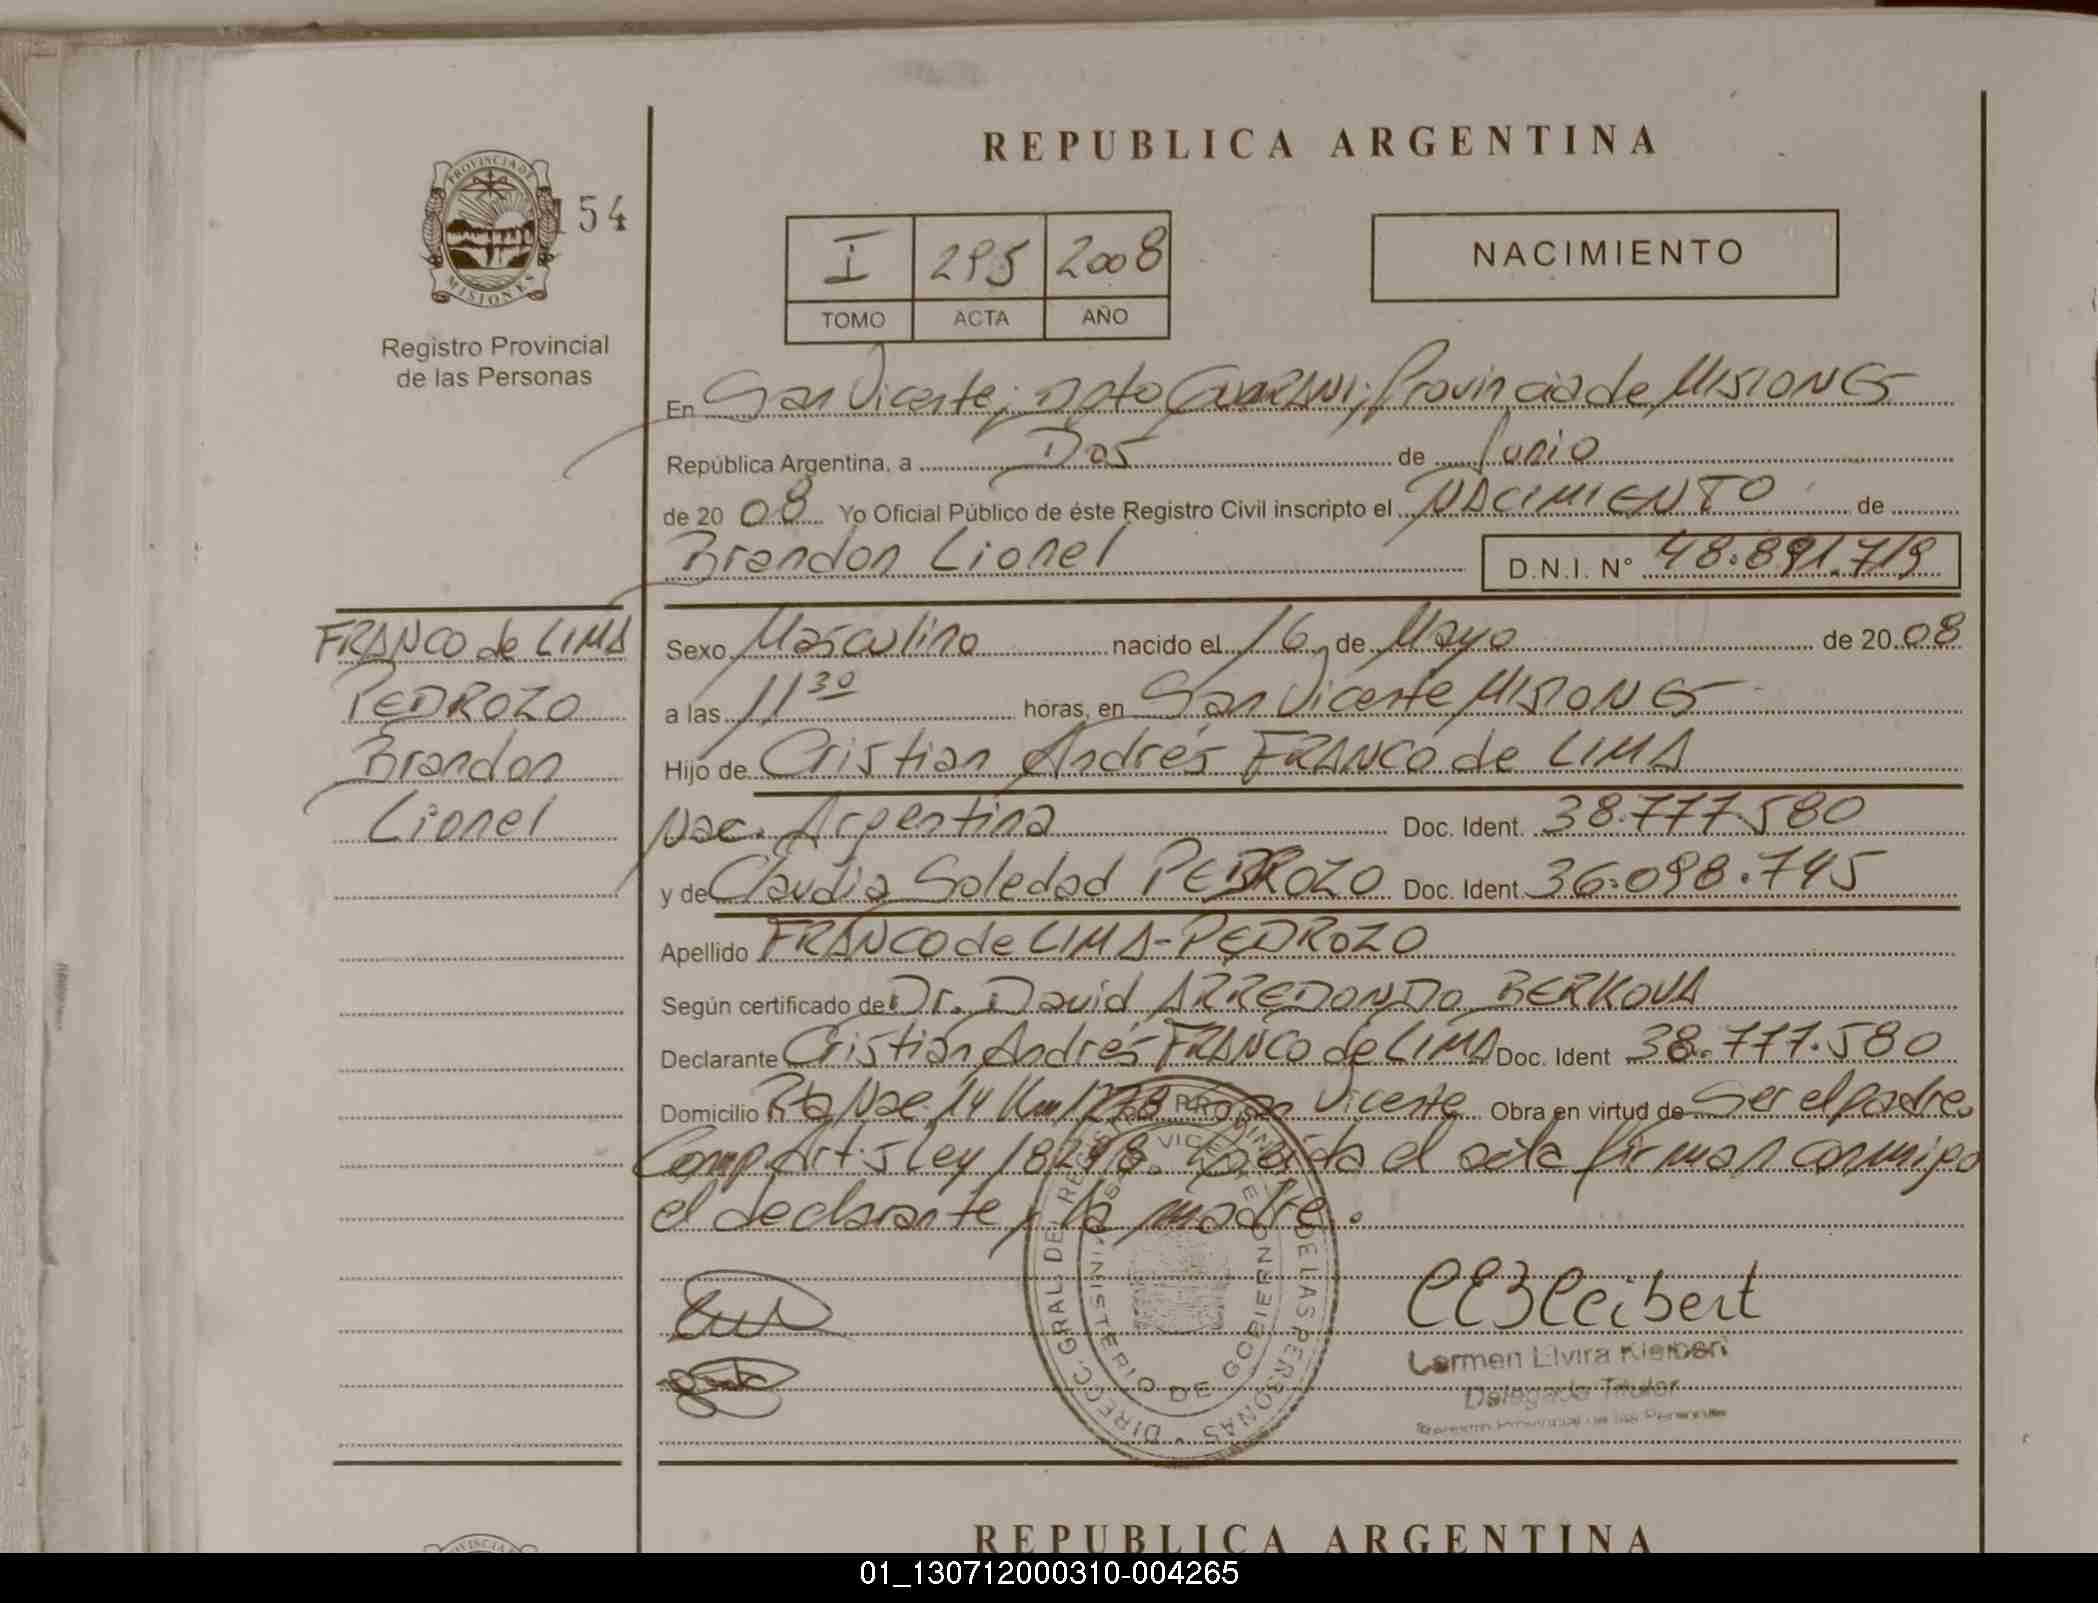 REPUBLICA ARGENTINA
PROVINCIA DE
MISIONES
154
Registro Provincial
de las Personas
I 295 2008
TOMO ACTA AÑO
NACIMIENTO
En San Vicente; Dpto GUARANI; Provincia de MISIONES
República Argentina, a Dos de Junio
de 20 08 Yo Oficial Público de éste Registro Civil inscripto el NACIMIENTO de
Brandon Lionel D.N.I. N° 48.891.719
FRANCO de LIMA
PEDROZO
Brandon
Lionel
Sexo Masculino nacido el 16 de Mayo de 20 08
a las 11 30 horas, en San Vicente MISIONES
Hijo de Cristian Andrés FRANCO de LIMA
Nac. Argentina Doc. Ident. 38.777.580
y de Claudia Soledad PEDROZO Doc. Ident. 36.098.745
Apellido FRANCO de LIMA-PEDROZO
Según certificado de Dr. David ARREDONDO BERKOVA
Declarante Cristian Andrés FRANCO de LIMA Doc. Ident 38.777.580
Domicilio Rta Nac. 14 Km 1278 San Vicente Obra en virtud de Ser el padre.
Comp. Art. 5 Ley 18248. Leída el acta firman conmigo
el declarante y la madre.
DIRECC. GRAL DE REG. PROVINC. DE LAS PERSONAS
SAN VICENTE
MINISTERIO DE GOBIERNO
CEKleibert
Carmen Elvira Kleibert
Delegada Titular
Registro Provincial de las Personas
REPUBLICA ARGENTINA
01_130712000310-004265